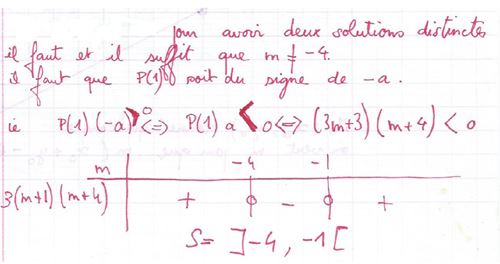 pour avoir deux solutions distinctes
il faut et il suffit que m ≠ -4.
il faut que P(1) soit du signe de -a.
ie P(1)(-a) > 0 <=> P(1) a < 0 <=> (3m+3)(m+4) < 0
m -4 -1
3(m+1)(m+4) + 0 - 0 +
S = ]-4, -1[